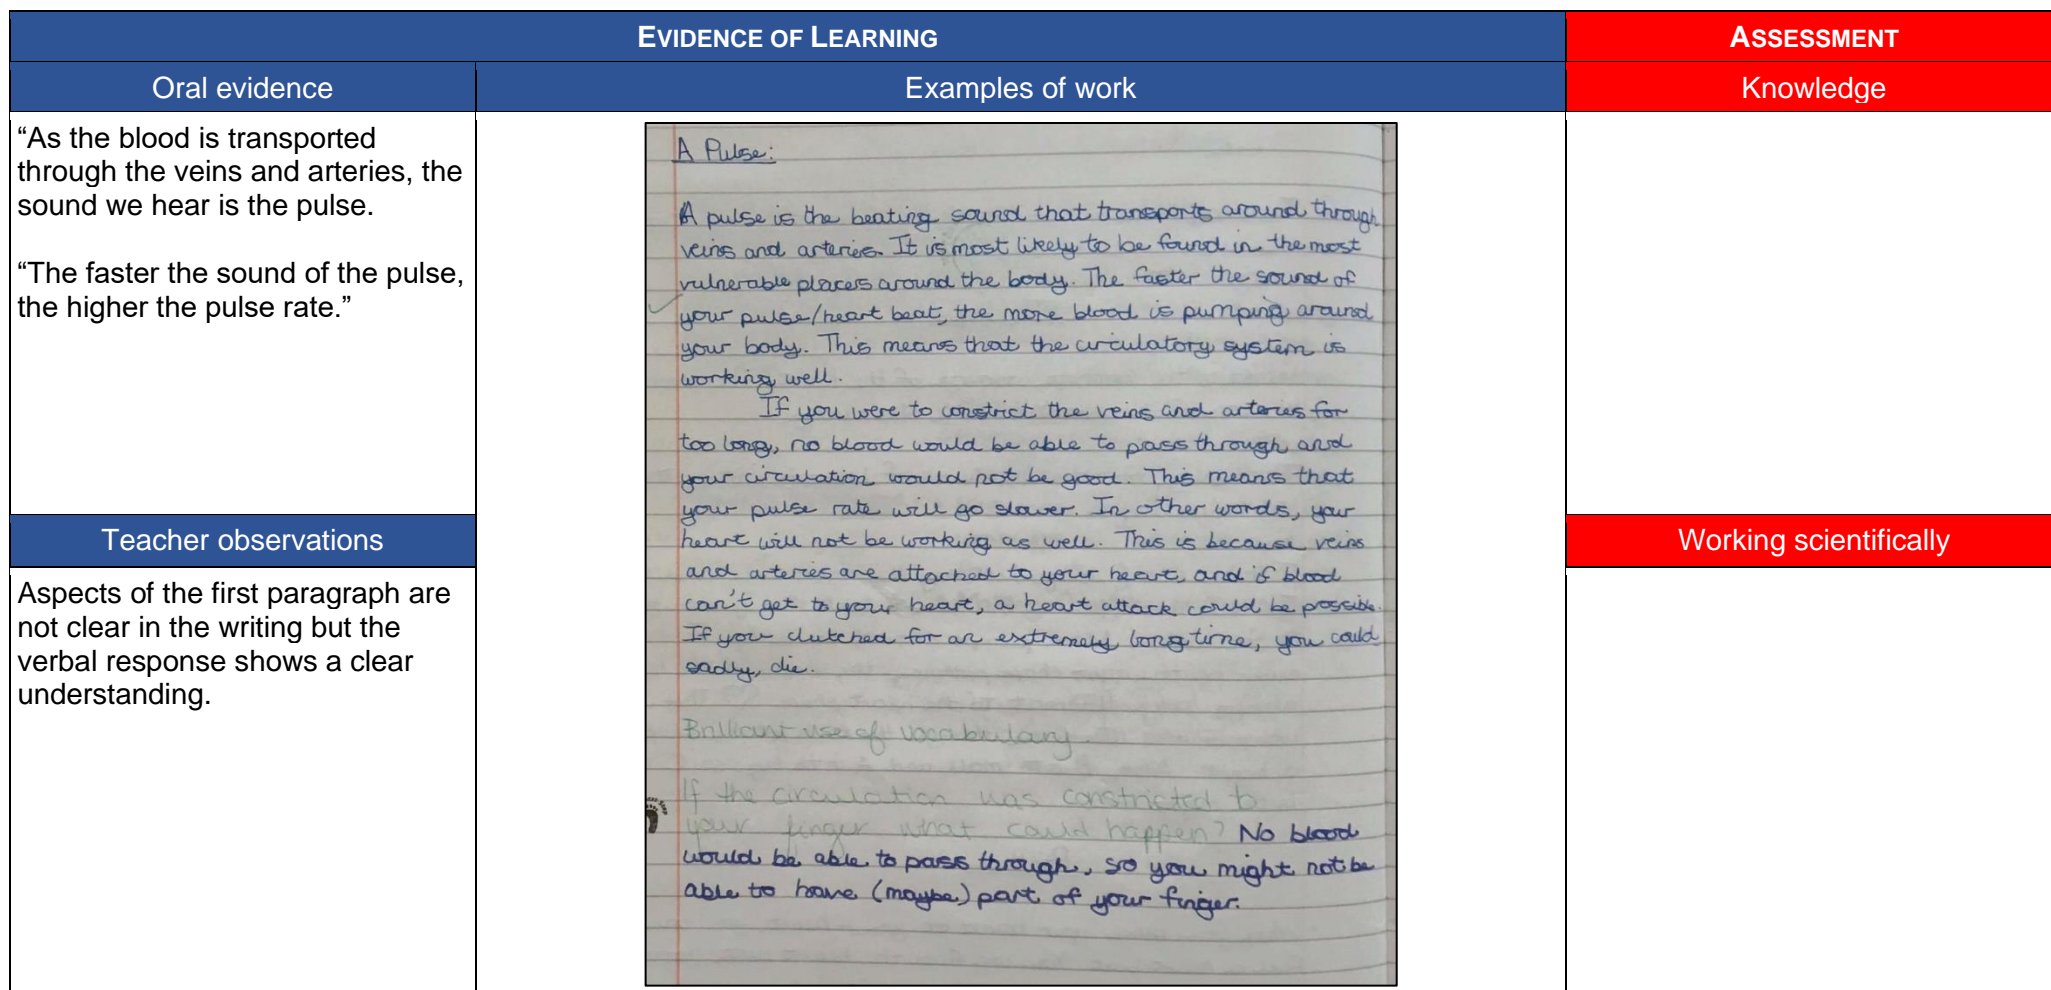 EVIDENCE OF LEARNING
ASSESSMENT
Oral evidence
Examples of work
Knowledge
“As the blood is transported
through the veins and arteries, the
sound we hear is the pulse.
“The faster the sound of the pulse,
the higher the pulse rate.”
Teacher observations
Aspects of the first paragraph are
not clear in the writing but the
verbal response shows a clear
understanding.
A Pulse:
A pulse is the beating sound that transports around through
veins and arteries. It is most likely to be found in the most
vulnerable places around the body. The faster the sound of
your pulse/heart beat, the more blood is pumping around
your body. This means that the circulatory system is
working well.
If you were to constrict the veins and arteries for
too long, no blood would be able to pass through and
your circulation would not be good. This means that
your pulse rate will go slower. In other words, your
heart will not be working as well. This is because veins
and arteries are attached to your heart, and if blood
can't get to your heart, a heart attack could be possible.
If you clutched for an extremely long time, you could
sadly, die.
Brilliant use of vocabulary.
If the circulation was constricted to
your finger what could happen? No blood
would be able to pass through, so you might not be
able to have (maybe) part of your finger.
Working scientifically